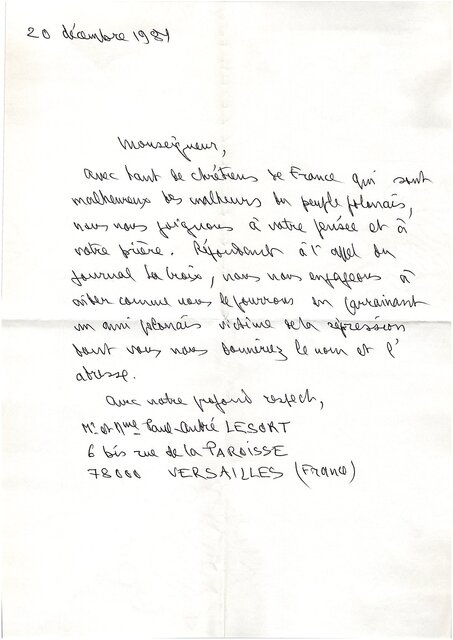 20 décembre 1981
Monseigneur,
avec tant de chrétiens de France qui sont
malheureux des malheurs du peuple polonais,
nous nous joignons à votre pensée et à
votre prière. Répondant à l'appel du
journal La Croix, nous nous engageons à
aider comme nous le pourrons en parrainant
un ami polonais victime de la répression
dont vous nous donneriez le nom et l'
adresse.
Avec notre profond respect,
Mr et Mme Paul-André LESORT
6 bis rue de la PAROISSE
78000 VERSAILLES (France)